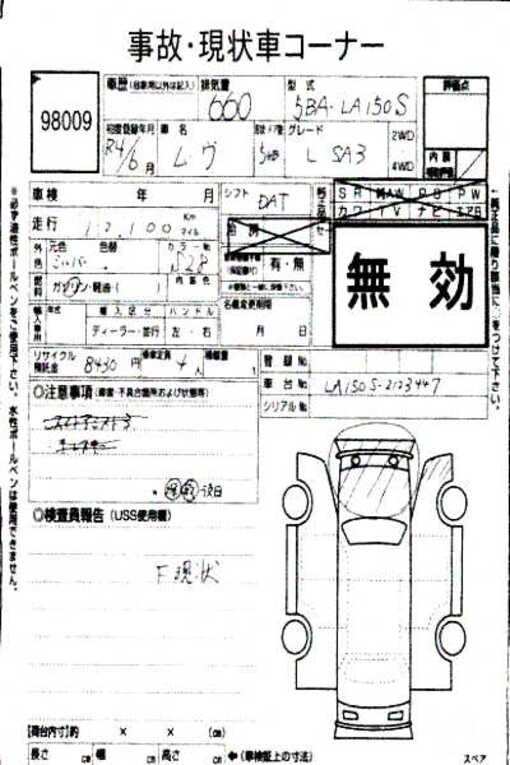 事故・現状車コーナー
98009
車歴 (自家用以外は記入) 排気量 660 型式 5BA-LA150S 評価点
初度登録年月 R4/6月 車名 ムーヴ 5HB グレード L SA3 2WD 4WD
内装
車検 年 月 シフト DAT SR 純AW PS PW
走行 12,100 Km マイル カワ TV ナビ エアB
外色 元色 シルバー 色替 カラーNo S28 有・無
無効
燃料 ガソリン・軽油・( ) 内装色
輸入車用 年式 輸入区分 ハンドル 名義変更期限
ディーラー・並行 左・右 月 日
リサイクル預託金 8430 円 乗車定員 4 人 積載量 t 登録No
車台No LA150S-2123447
シリアルNo
◎注意事項 (修復・不具合箇所および状態等)
後日
◎検査員報告 (USS使用欄)
F現状
【荷台内寸】約 × × (cm)
長さ cm 幅 cm 高さ cm ←(車検証上の寸法)
スペア
※必ず油性ボールペンをご使用下さい。水性ボールペンは使用できません。